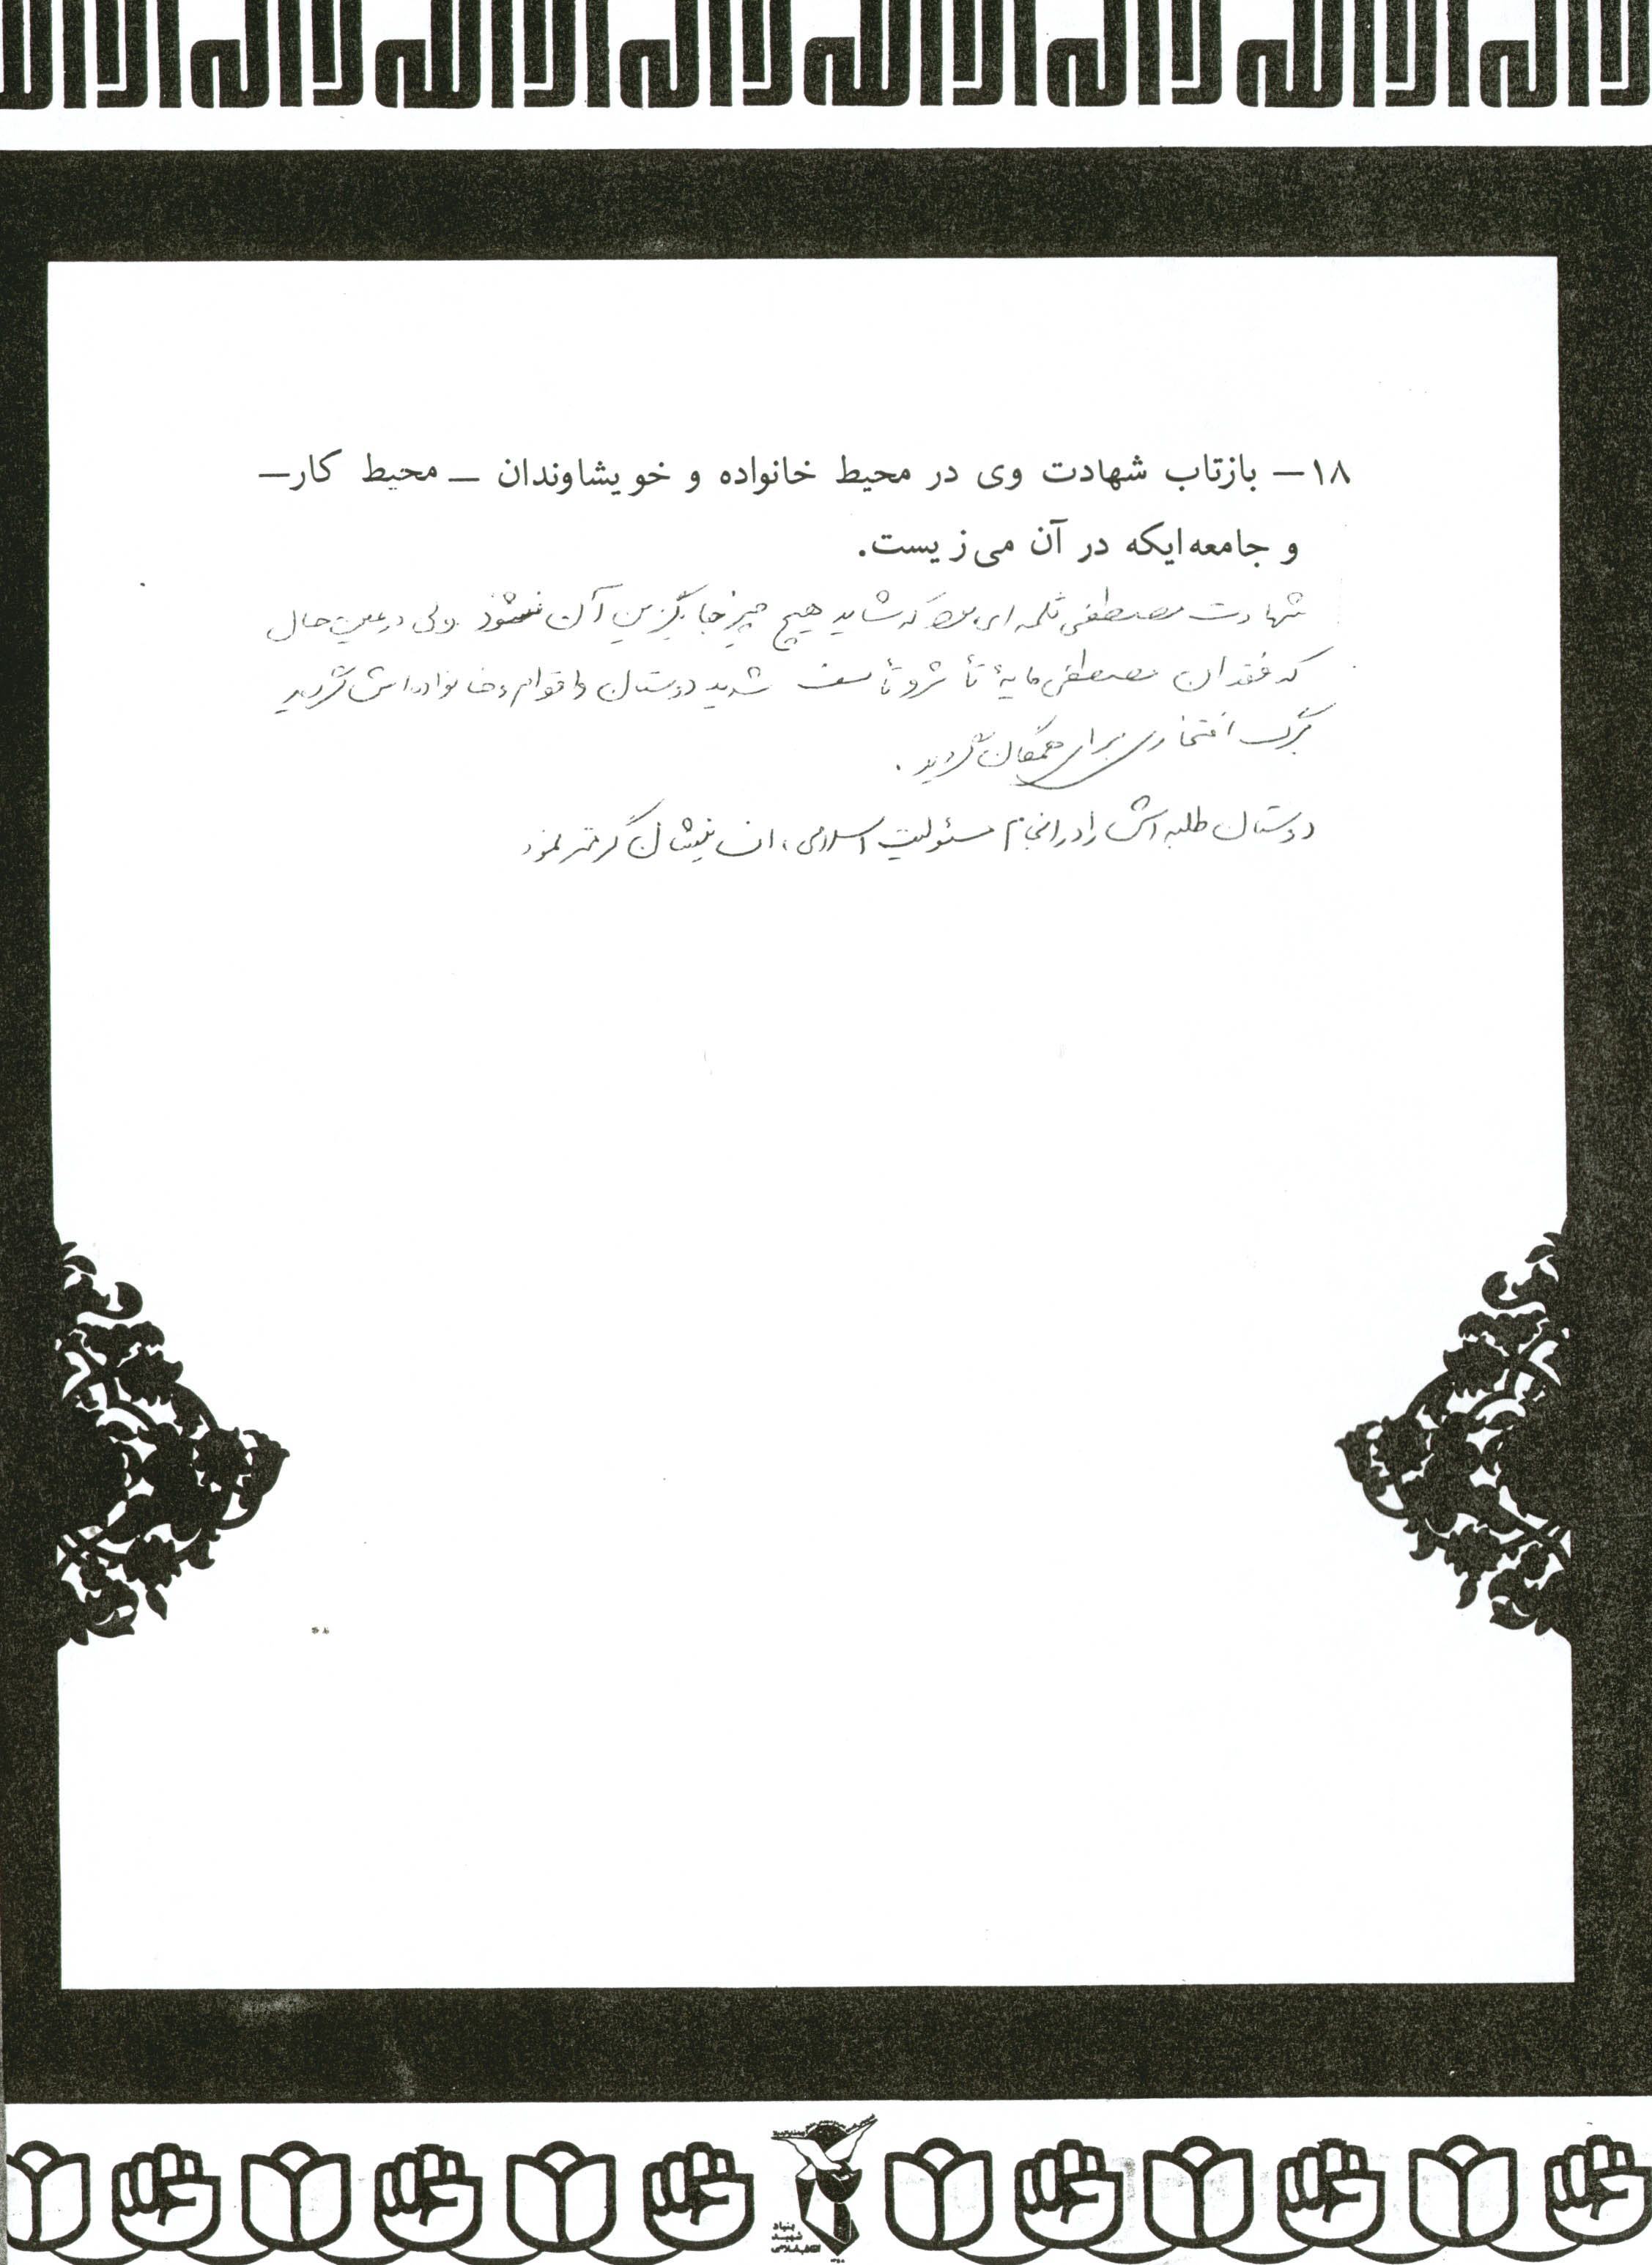 ۱۸ــ بازتاب شهادت وی در محیط خانواده و خویشاوندان ــ محیط کارــ
و جامعه‌ایکه در آن می‌زیست.
شهادت مصطفی ثلمه ای بود که شاید هیچ چیز جایگزین آن نشود ولی در عین حال
که فقدان مصطفی مایهٔ تأثر و تأسف شدید دوستان و اقوام و خانواده اش گردید
برگ افتخاری برای همگان گردید.
دوستان طلبه اش را در انجام مسئولیت اسلامی، انسانیشان گرمتر نمود
بنیاد
شهید
انقلاب اسلامی